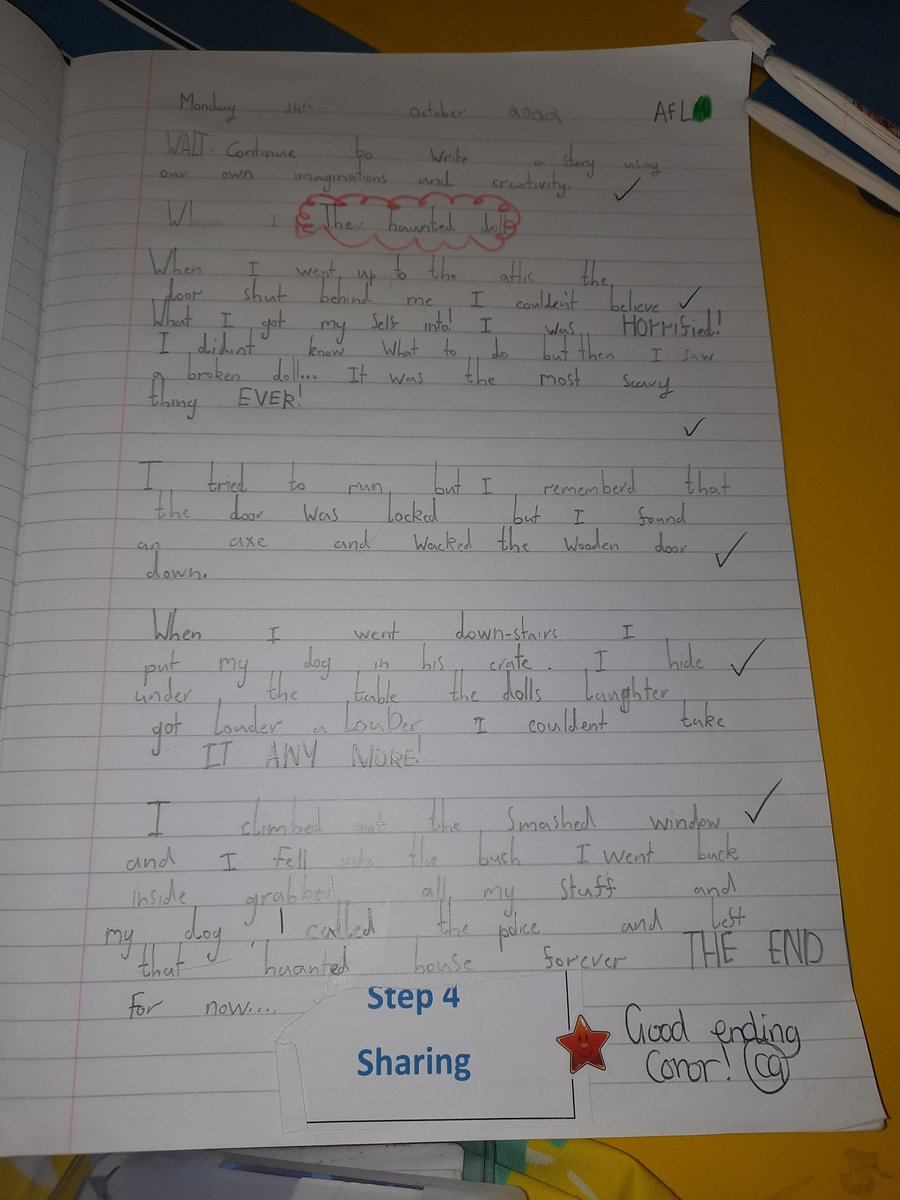 Monday 24th October 2022 AfL
WALT: Continue to write a story using
our own imaginations and creativity.
When I The haunted doll
When I went up to the attic the
door shut behind me I couldn't believe
What I got my self into! I was HORRified!
I dident know what to do but then I saw
a broken doll... It was the most scary
thing EVER!
I tried to run but I rememberd that
the door was locked but I found
an axe and wacked the wooden door
down.
When I went down-stairs I
put my dog in his crate. I hide
under the table the dolls laughter
got louder a LouDer I couldent take
IT ANY MORE!
I climbed out the smashed window
and I fell into the bush I went back
inside grabbed all my stuff and
my dog, I called the police and left
that haunted house forever THE END
for now....
Step 4
Sharing
Good ending
Conor! CG